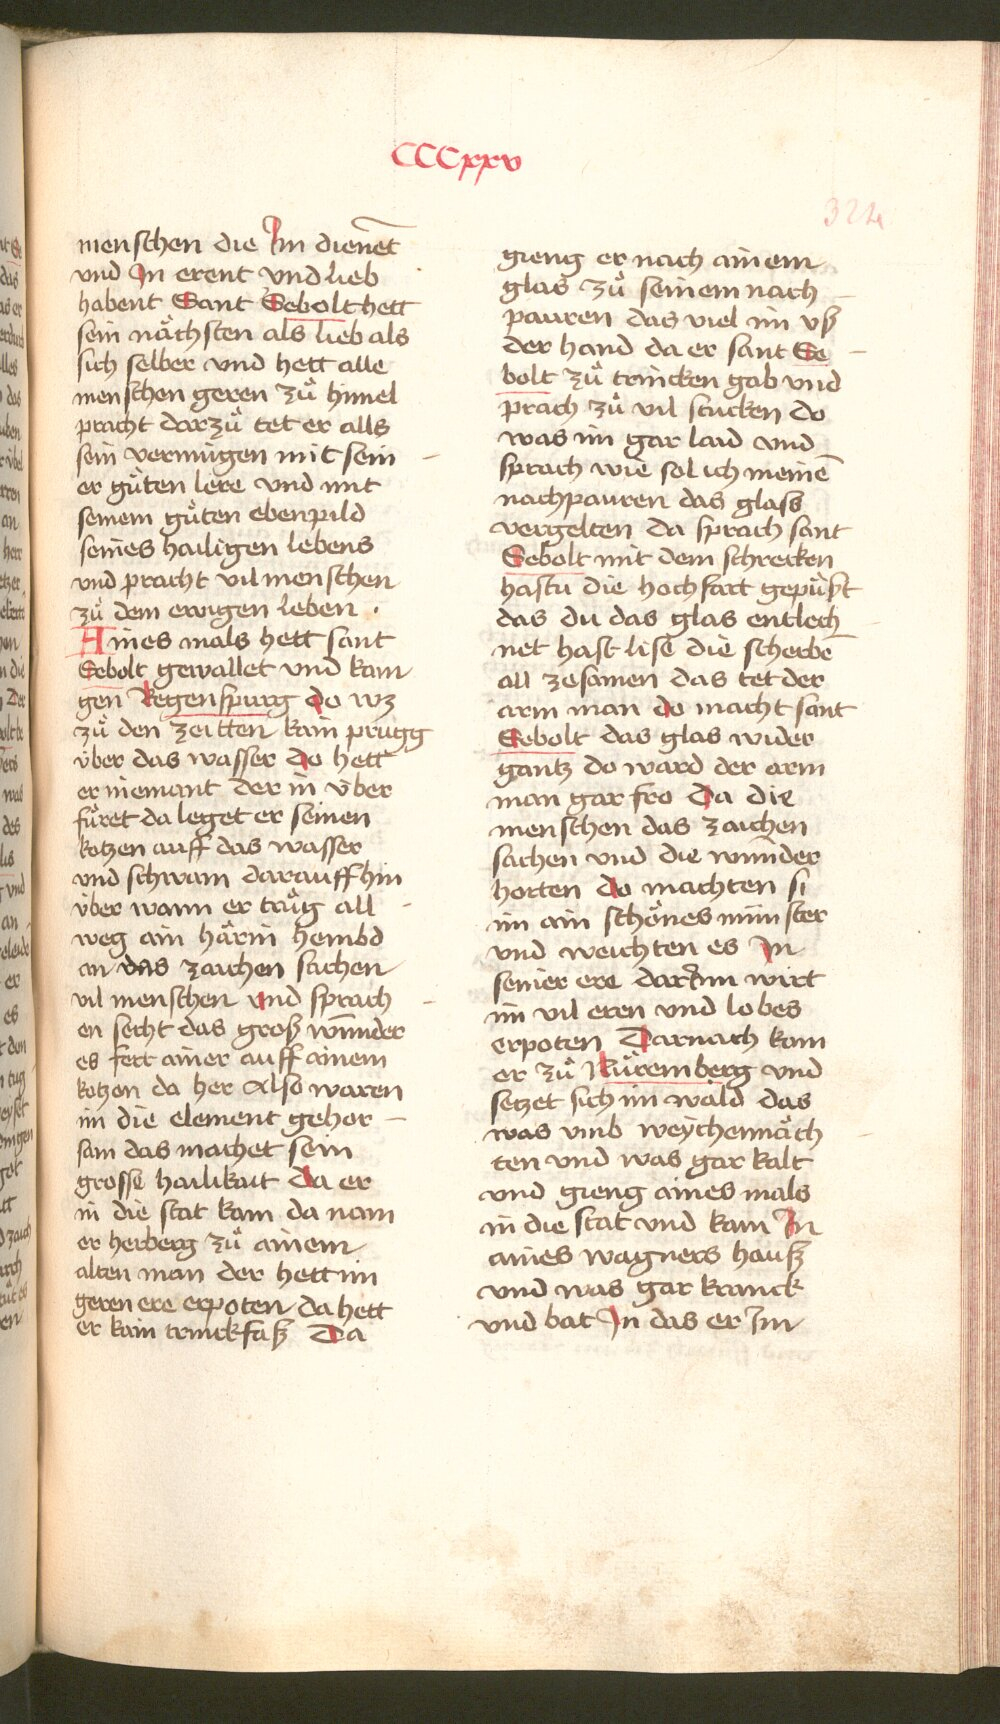 CCCxxv
324
menschen die Im dienēt
vnd In erent vnd lieb
habent Sant Sebolt hett
sein nächsten als lieb als
sich selber vnd hett alle
menschen geren zů himel
pracht darzů tet er alls
sein vermügen mit sein
er gůten lere vnd mit
seinem gůten ebenpild
seines hailigen lebens
vnd pracht vil menschen
zů dem ewigen leben .
Aines mals hett sant
Sebolt gewallet vnd kam
gen Regenspurg do wz
zů den zeitten kain prugg
über das wasser do hett
er niemant der in über
fůret da leget er seinen
kotzen auff das wasser
vnd schwam darauff hin
über wann er trůg all
weg ain härin hembd
an das zaichen sachen
vil menschen vnd sprach
en secht das groß wunder
es fert ainer auff ainem
kotzen da her Also waren
im die element gehor
sam das machet sein
grosse hailikait Da er
in die stat kam da nam
er herberg zů ainem
alten man der hett im
geren ere erpoten da hett
er kain trinckfaß Da
gieng er nach ainem
glas zů seinem nach
pauren das viel im vß
der hand da er sant Se
bolt zů trincken gab vnd
prach zů vil stucken do
was im gar laid vnd
sprach wie sol ich meinē
nachpauren das glass
vergelten da sprach sant
Sebolt mit dem schrecken
hastu die hochfart gepüßt
das du das glas entlech
net hast lise die scherbē
all zesamen das tet der
arm man do macht sant
Sebolt das glas wider
gantz do ward der arm
man gar fro Da die
menschen das zaichen
sachen vnd die wunder
horten do machten si
im ain schönes münster
vnd weichten es In
seiner ere darInn wirt
im vil eren vnd lobes
erpoten Darnach kom
er zů Nüremberg vnd
setzet sich im wald das
was vmb weychennäch
ten vnd was gar kalt
vnd gieng aines mals
in die stat vnd kam In
aines wagners hauß
vnd was gar kranck
vnd bat In das er Im